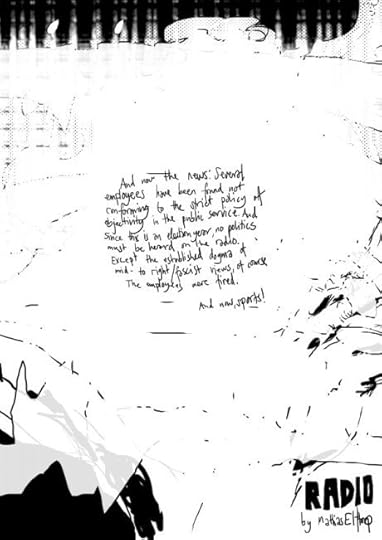 And now the news: Several
employees have been found not
conforming to the strict policy of
objectivity in the public service. And
since this is an election year, no politics
must be heard on the radio.
Except the established dogma of
mid- to right/fascist views, of course.
The employees were fired.
And now, sports!
RADIO
by